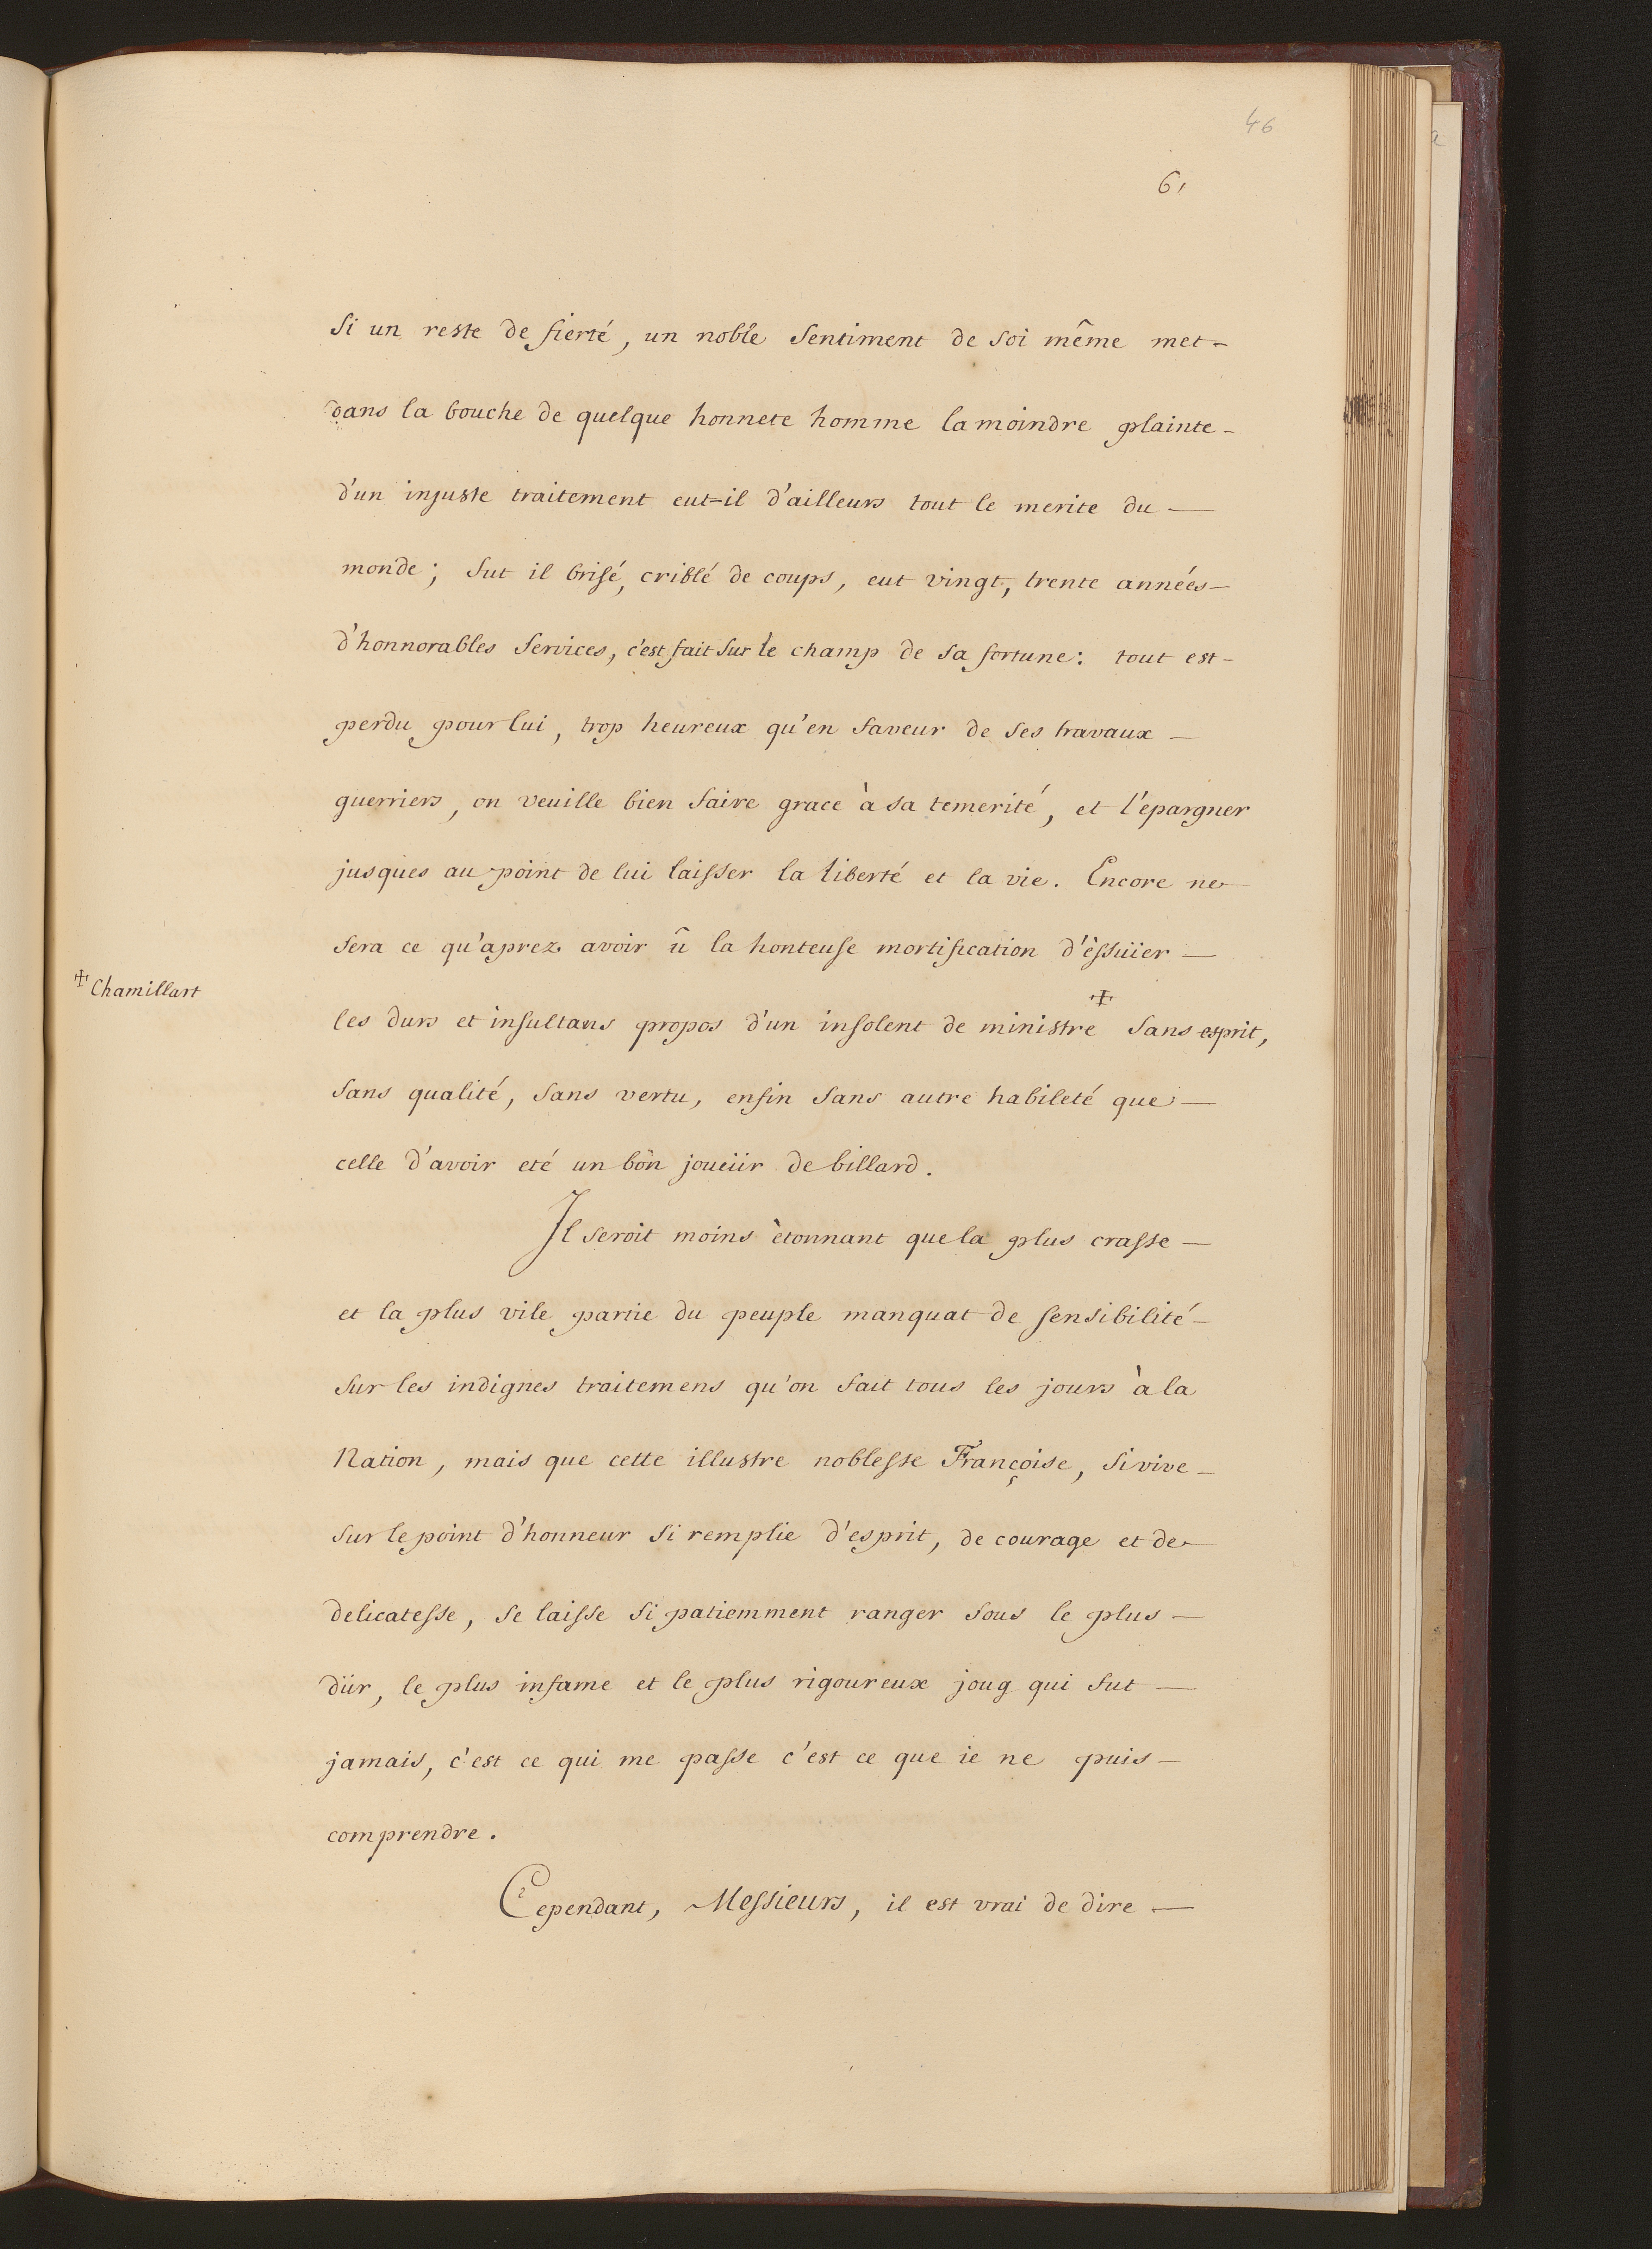 46
61
Si un reste de fierté, un noble sentiment de soi même met-
dans la bouche de quelque honnete homme la moindre plainte-
d'un injuste traitement eut-il d'ailleurs tout le merite du —
monde; fut il brisé, criblé de coups, eut vingt, trente années-
d'honnorables services, c'est fait sur le champ de sa fortune: tout est-
perdu pour lui, trop heureux qu'en faveur de ses travaux —
guerriers, on veuille bien faire grace à sa temerité, et l'épargner
jusques au point de lui laisser la liberté et la vie. Encore ne
sera ce qu'aprez avoir û la honteuse mortification d'èssuïer —
+ Chamillart
les durs et insultans propos d'un insolent de ministre + sans esprit,
sans qualité, sans vertu, enfin sans autre habileté que —
celle d'avoir eté un bon joueür de billard.
Il seroit moins ètonnant que la plus crasse —
et la plus vile partie du peuple manquat de sensibilité —
sur les indignes traitemens qu'on fait tous les jours à la
Nation, mais que cette illustre noblesse Françoise, si vive —
sur le point d'honneur si remplie d'esprit, de courage et de
delicatesse, se laisse si patiemment ranger sous le plus —
dür, le plus infame et le plus rigoureux joug qui fut —
jamais, c'est ce qui me passe c'est ce que ie ne puis —
comprendre.
Cependant, Messieurs, il est vrai de dire —